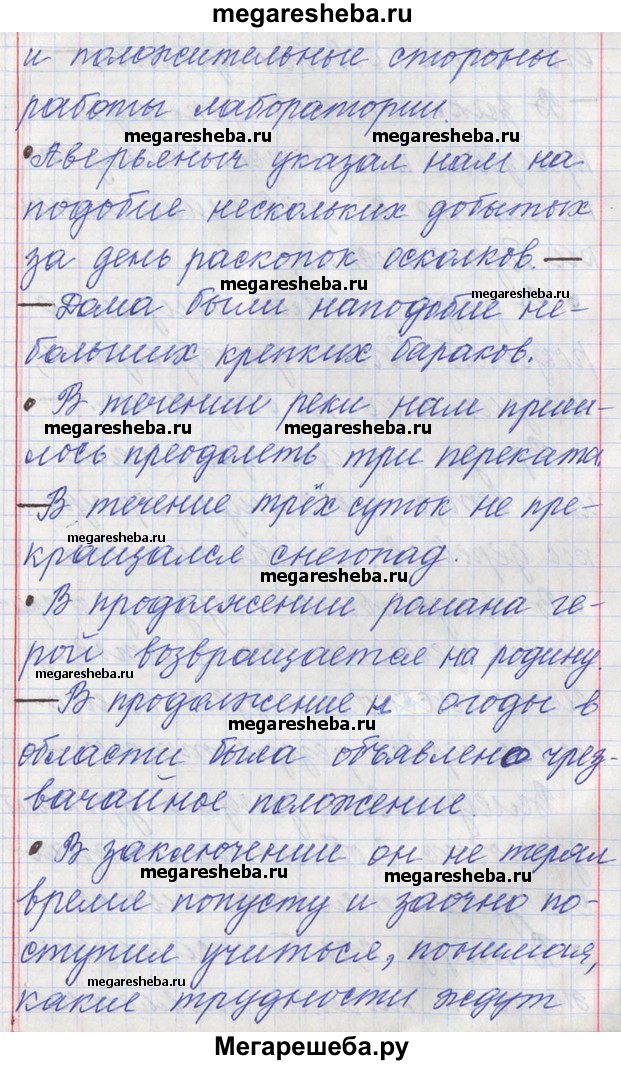 megaresheba.ru
и положительные стороны
работы лаборатории.
megaresheba.ru megaresheba.ru
• Аверьяныч указал нам на
подобие нескольких добытых
за день раскопок осколков. —
megaresheba.ru megaresheba.ru
— Дома были наподобие не-
больших крепких бараков.
• В течении реки нам приш-
megaresheba.ru megaresheba.ru
лось преодолеть три переката.
— В течение трёх суток не пре-
megaresheba.ru
кращался снегопад.
megaresheba.ru
• В продолжении романа ге-
рой возвращается на родину.
megaresheba.ru
— В продолжение н огоды в
megaresheba.ru
области было объявлено чрез-
вачайное положение.
• В заключении он не терял
megaresheba.ru megaresheba.ru
время попусту и заочно по-
ступил учиться, понимая,
megaresheba.ru
какие трудности ждут
Мегарешеба.ру